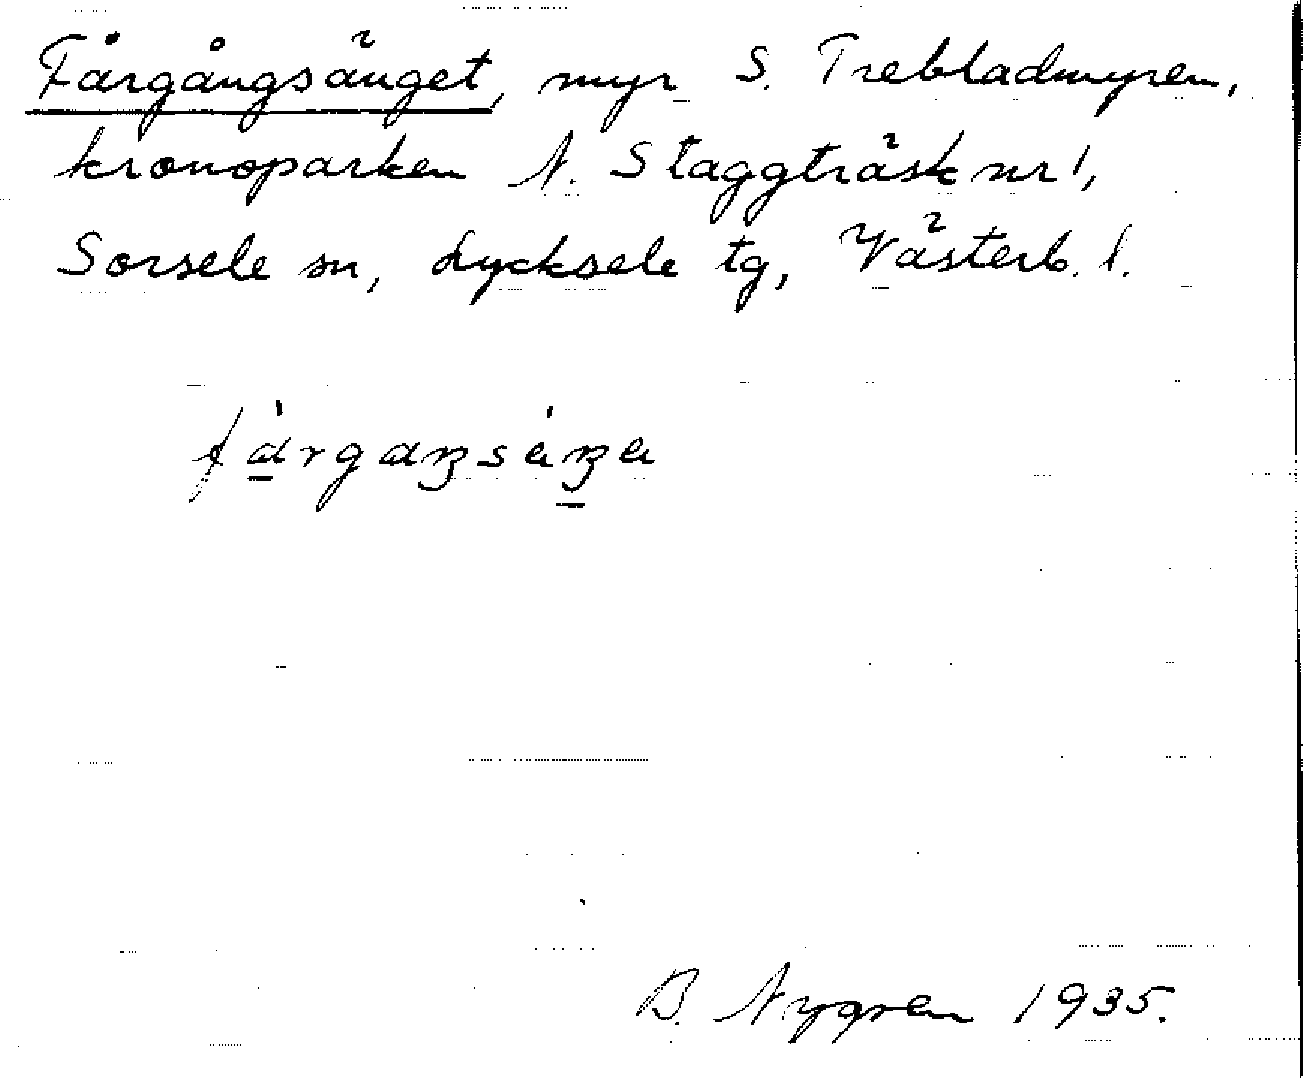 Fårgångsänget, myr S. Trebladmyren,
kronoparken N. Staggträsk nr 1,
Sorsele sn, Lycksele tg, Västerb. l.
B. Nygren 1935.